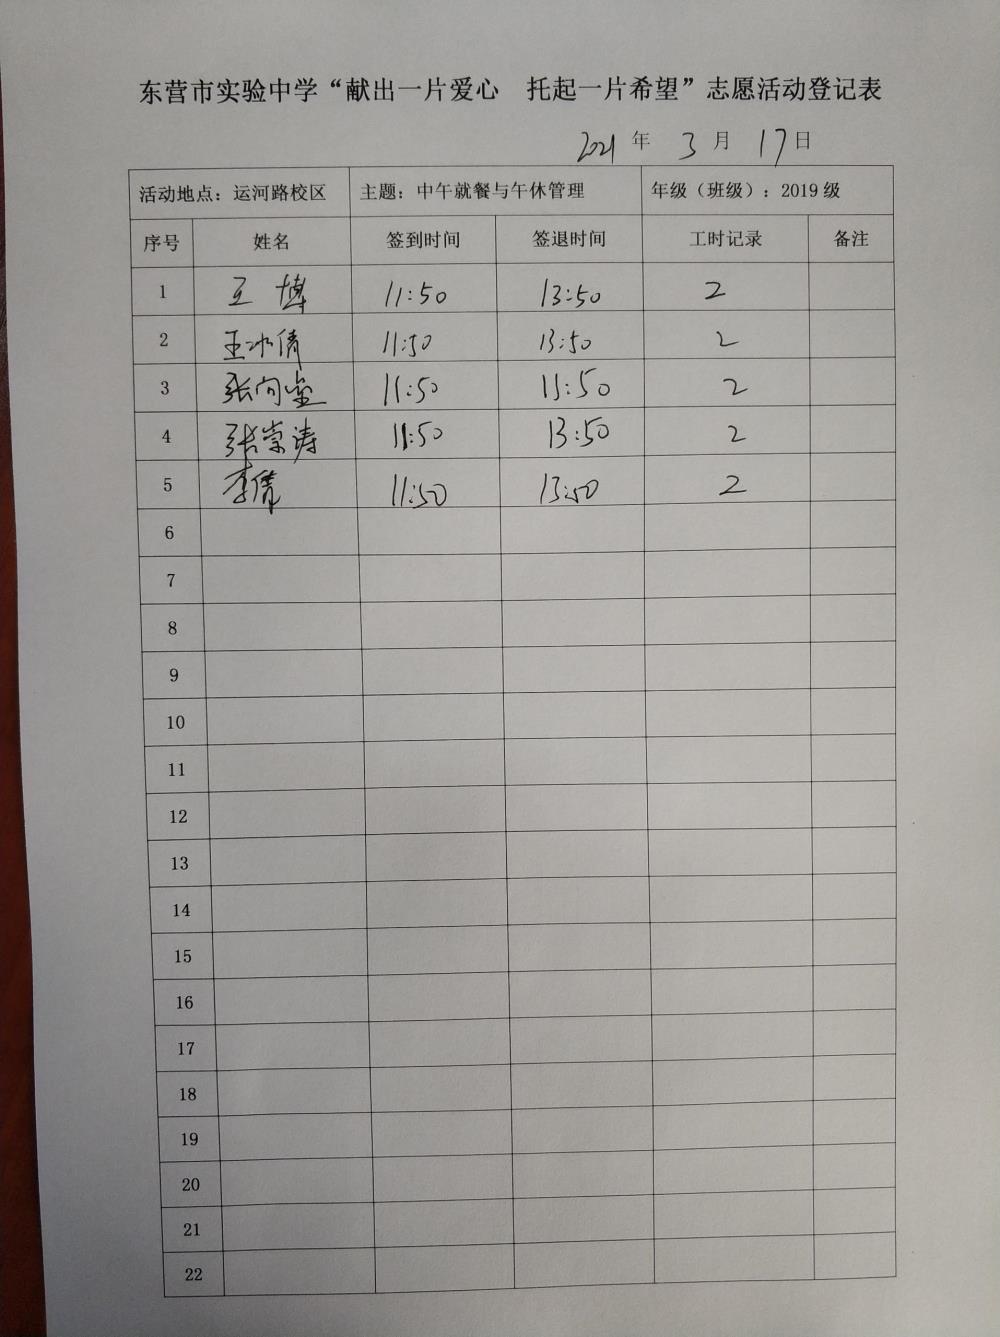 东营市实验中学“献出一片爱心 托起一片希望”志愿活动登记表
2021 年 3 月 17 日
活动地点：运河路校区 主题：中午就餐与午休管理 年级（班级）：2019 级
序号 姓名 签到时间 签退时间 工时记录 备注
1 王博 11:50 13:50 2
2 王冰倩 11:50 13:50 2
3 张向 11:50 13:50 2
4 张崇涛 11:50 13:50 2
5 李倩 11:50 13:50 2
6
7
8
9
10
11
12
13
14
15
16
17
18
19
20
21
22